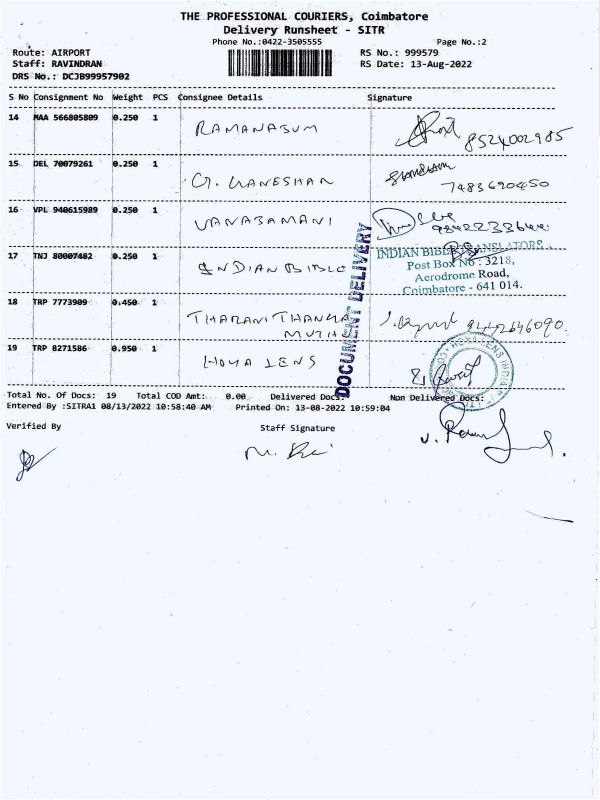 THE PROFESSIONAL COURIERS, Coimbatore
Delivery Runsheet - SITR
Phone No.:0422-3505555 Page No.:2
Route: AIRPORT RS No.: 999579
Staff: RAVINDRAN RS Date: 13-Aug-2022
DRS No.: DCJB99957902
S No Consignment No Weight PCS Consignee Details Signature
14 MAA 566805809 0.250 1 RAMANASUM 8524002985
15 DEL 70079261 0.250 1 G. GANESHAN 7483690450
16 VPL 940615989 0.250 1 VANAJAMANI
17 TNJ 80007482 0.250 1 INDIAN BIBLE
INDIAN BIBLE TRANSLATORS
Post Box No : 3218,
Aerodrome Road,
Coimbatore - 641 014.
18 TRP 7773909 0.450 1 THARANI THANGA MUTHU 9442646090.
19 TRP 8271586 0.950 1 HOYA LENS
DOCUMENT DELIVERY
HOYA LENS INDIA
Total No. Of Docs: 19 Total COD Amt: 0.00 Delivered Docs: Non Delivered Docs:
Entered By :SITRA1 08/13/2022 10:58:40 AM Printed On: 13-08-2022 10:59:04
Verified By Staff Signature